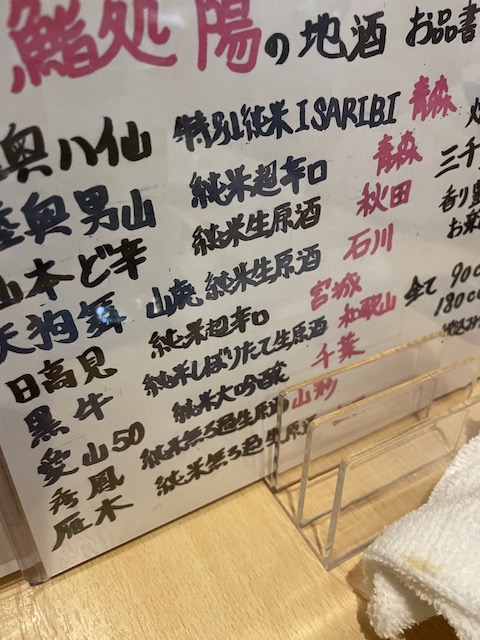 鮨処 陽の地酒 お品書
奥八仙 特別純米 ISARIBI 青森
陸奥男山 純米超辛口 青森 三千
山本ど辛 純米生原酒 秋田 香り
天狗舞 山廃 純米生原酒 石川 お
日高見 純米超辛口 宮城 全て 90
黒牛 純米しぼりたて生原酒 和歌山 180
愛山50 純米大吟醸 千葉
秀鳳 純米無ろ過生原酒 山形
雁木 純米無ろ過生原酒